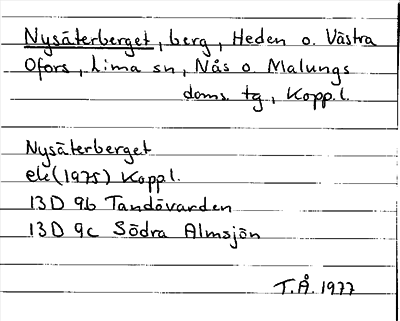 Nysäterberget, berg, Heden o. Västra
Ofors, Lima sn, Nås o. Malungs
doms. tg, Kopp.l.
Nysäterberget
ek (1975) Koppl.
13D 9b Tandövarden
13D 9c Södra Almsjön
T.Å. 1977